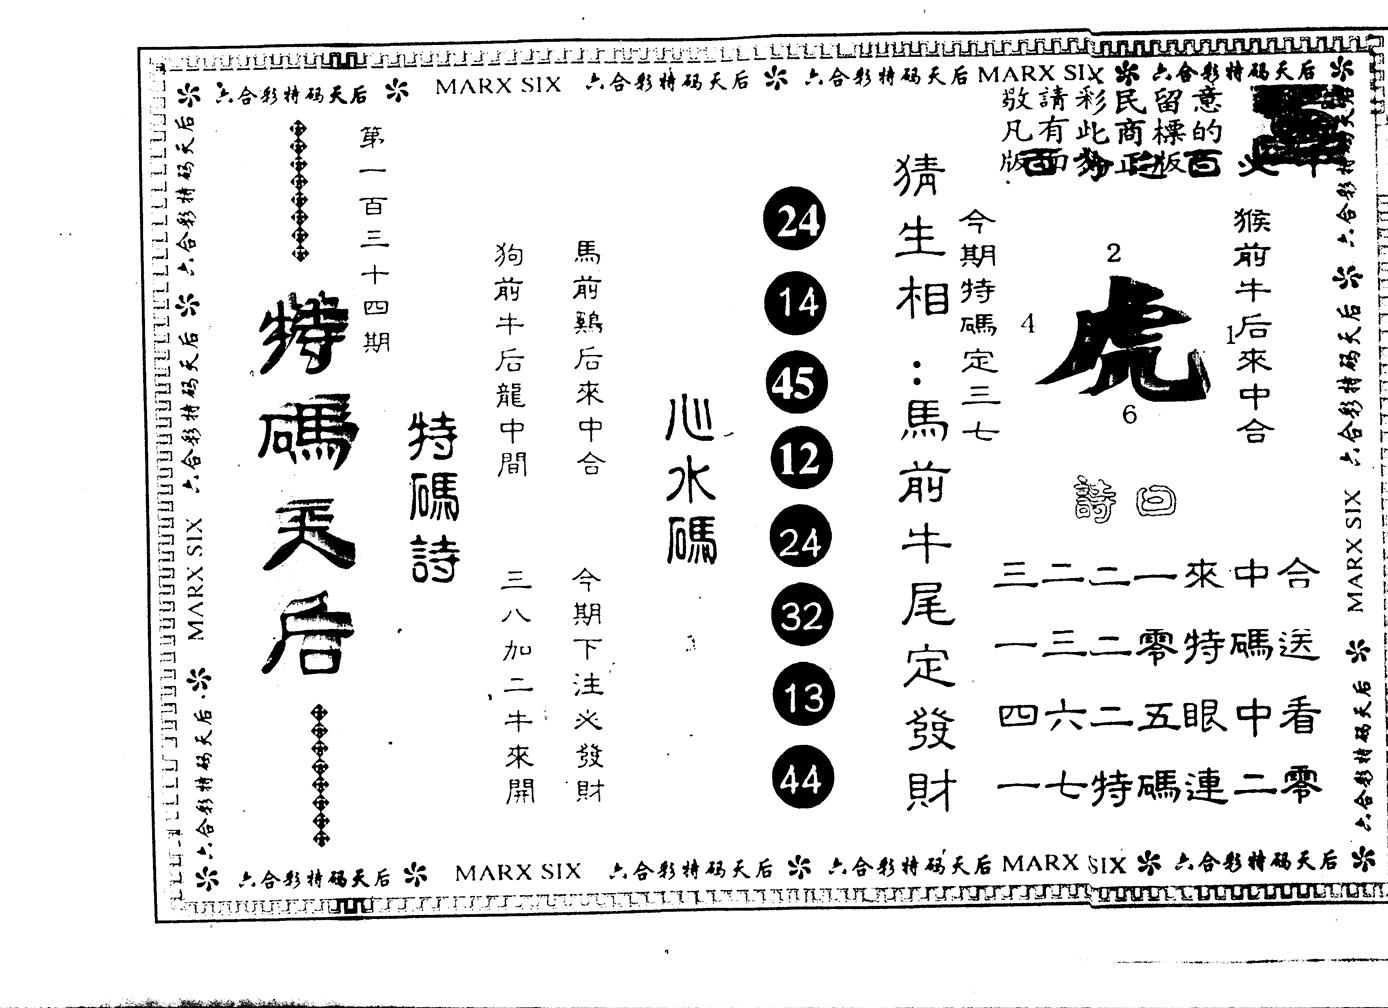 六合彩特码天后 MARX SIX 六合彩特码天后 六合彩特码天后 MARX SIX 六合彩特码天后
敬請彩民留意
凡有此商標的
猴前牛后來中合
虎
2
4
1
6
今期特碼定三七
詩曰
三二二一來中合
一三二零特碼送
四六二五眼中看
一七特碼連二零
猜生相:馬前牛尾定發財
24
14
45
12
24
32
13
44
心水碼
馬前鷄后來中合
今期下注必發財
狗前牛后龍中間
三八加二牛來開
特碼詩
第一百三十四期
特碼天后
六合彩特码天后 六合彩特码天后 MARX SIX 六合彩特码天后
六合彩特码天后 六合彩特码天后 MARX SIX 六合彩特码天后
六合彩特码天后 MARX SIX 六合彩特码天后 六合彩特码天后 MARX SIX 六合彩特码天后